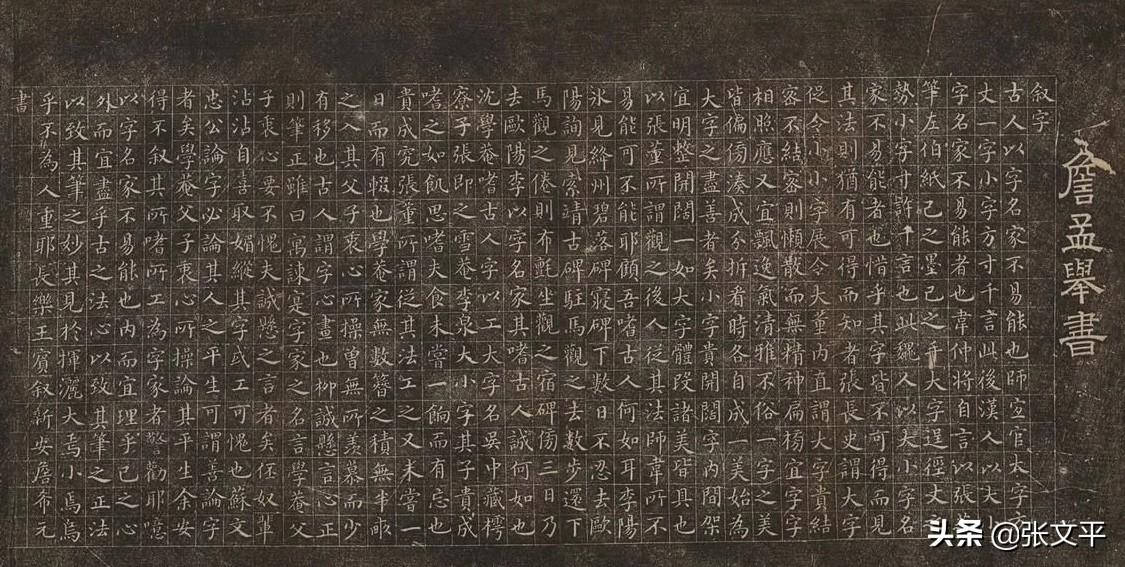 詹孟舉書
叙字
古人以字名家不易能也師宜官大字方
丈一字小字方寸千言此後漢人以大小
字名家不易能者也韋仲將自言以張芝
筆左伯紙己之墨己之手大字逞徑丈之
勢小字寸許千言也此魏人以大小字名
家不易能者也惜乎其字皆不可得而見
其法則猶有可得而知者張長史謂大字
促令小小字展令大董內直謂大字貴結
密不結密則懶散而無精神扁榜宜字字
相照應又宜飄逸氣清雅不俗一字之美
皆偏傍湊成分拆看時各自成一美始為
大字之盡善者矣小字貴開闊字內間架
宜明整開闊一如大字體段諸美皆具也
以張董所謂觀之後人從其法師韋所不
易能可不能耶顧吾嗜古人何如耳李陽
冰見絳州碧落碑寢碑下數日不忍去歐
陽詢見索靖古碑駐馬觀之去數步還下
馬觀之倦則布氈坐觀之宿碑傍三日乃
去歐陽李以字名家其嗜古人誠何如也
沈學菴嗜古人字以工大字名吳中藏樗
寮子張即之雪菴李衆大小字其子貴成
嗜之如飢思嗜夫食未嘗一餉而有忘也
貴成究張董所謂從其法工之又未嘗一
日而有輟也學菴家無數簪之積無半畝
之入其父子衷心所操曽無所羨慕而少
有移也古人謂字心畫也柳誠懸言心正
則筆正雖曰寓諫寔字家之名言學菴父
子衷心要不愧夫誠懸之言者矣伾奴輩
沾沾自喜取媚縱其字或工可愧也蘇文
忠公論字必論其人之平生可謂善論字
者矣學菴父子衷心所操論其平生余安
得不叙其所嗜所工為字家者警勸耶噫
以字名家不易能也內而宜理乎己之心
外而宜盡乎古之法心以致其筆之正法
以致其筆之妙其見於揮灑大焉小焉烏
乎不為人重耶長樂王賓叙新安詹希元
書
头条 @张文平